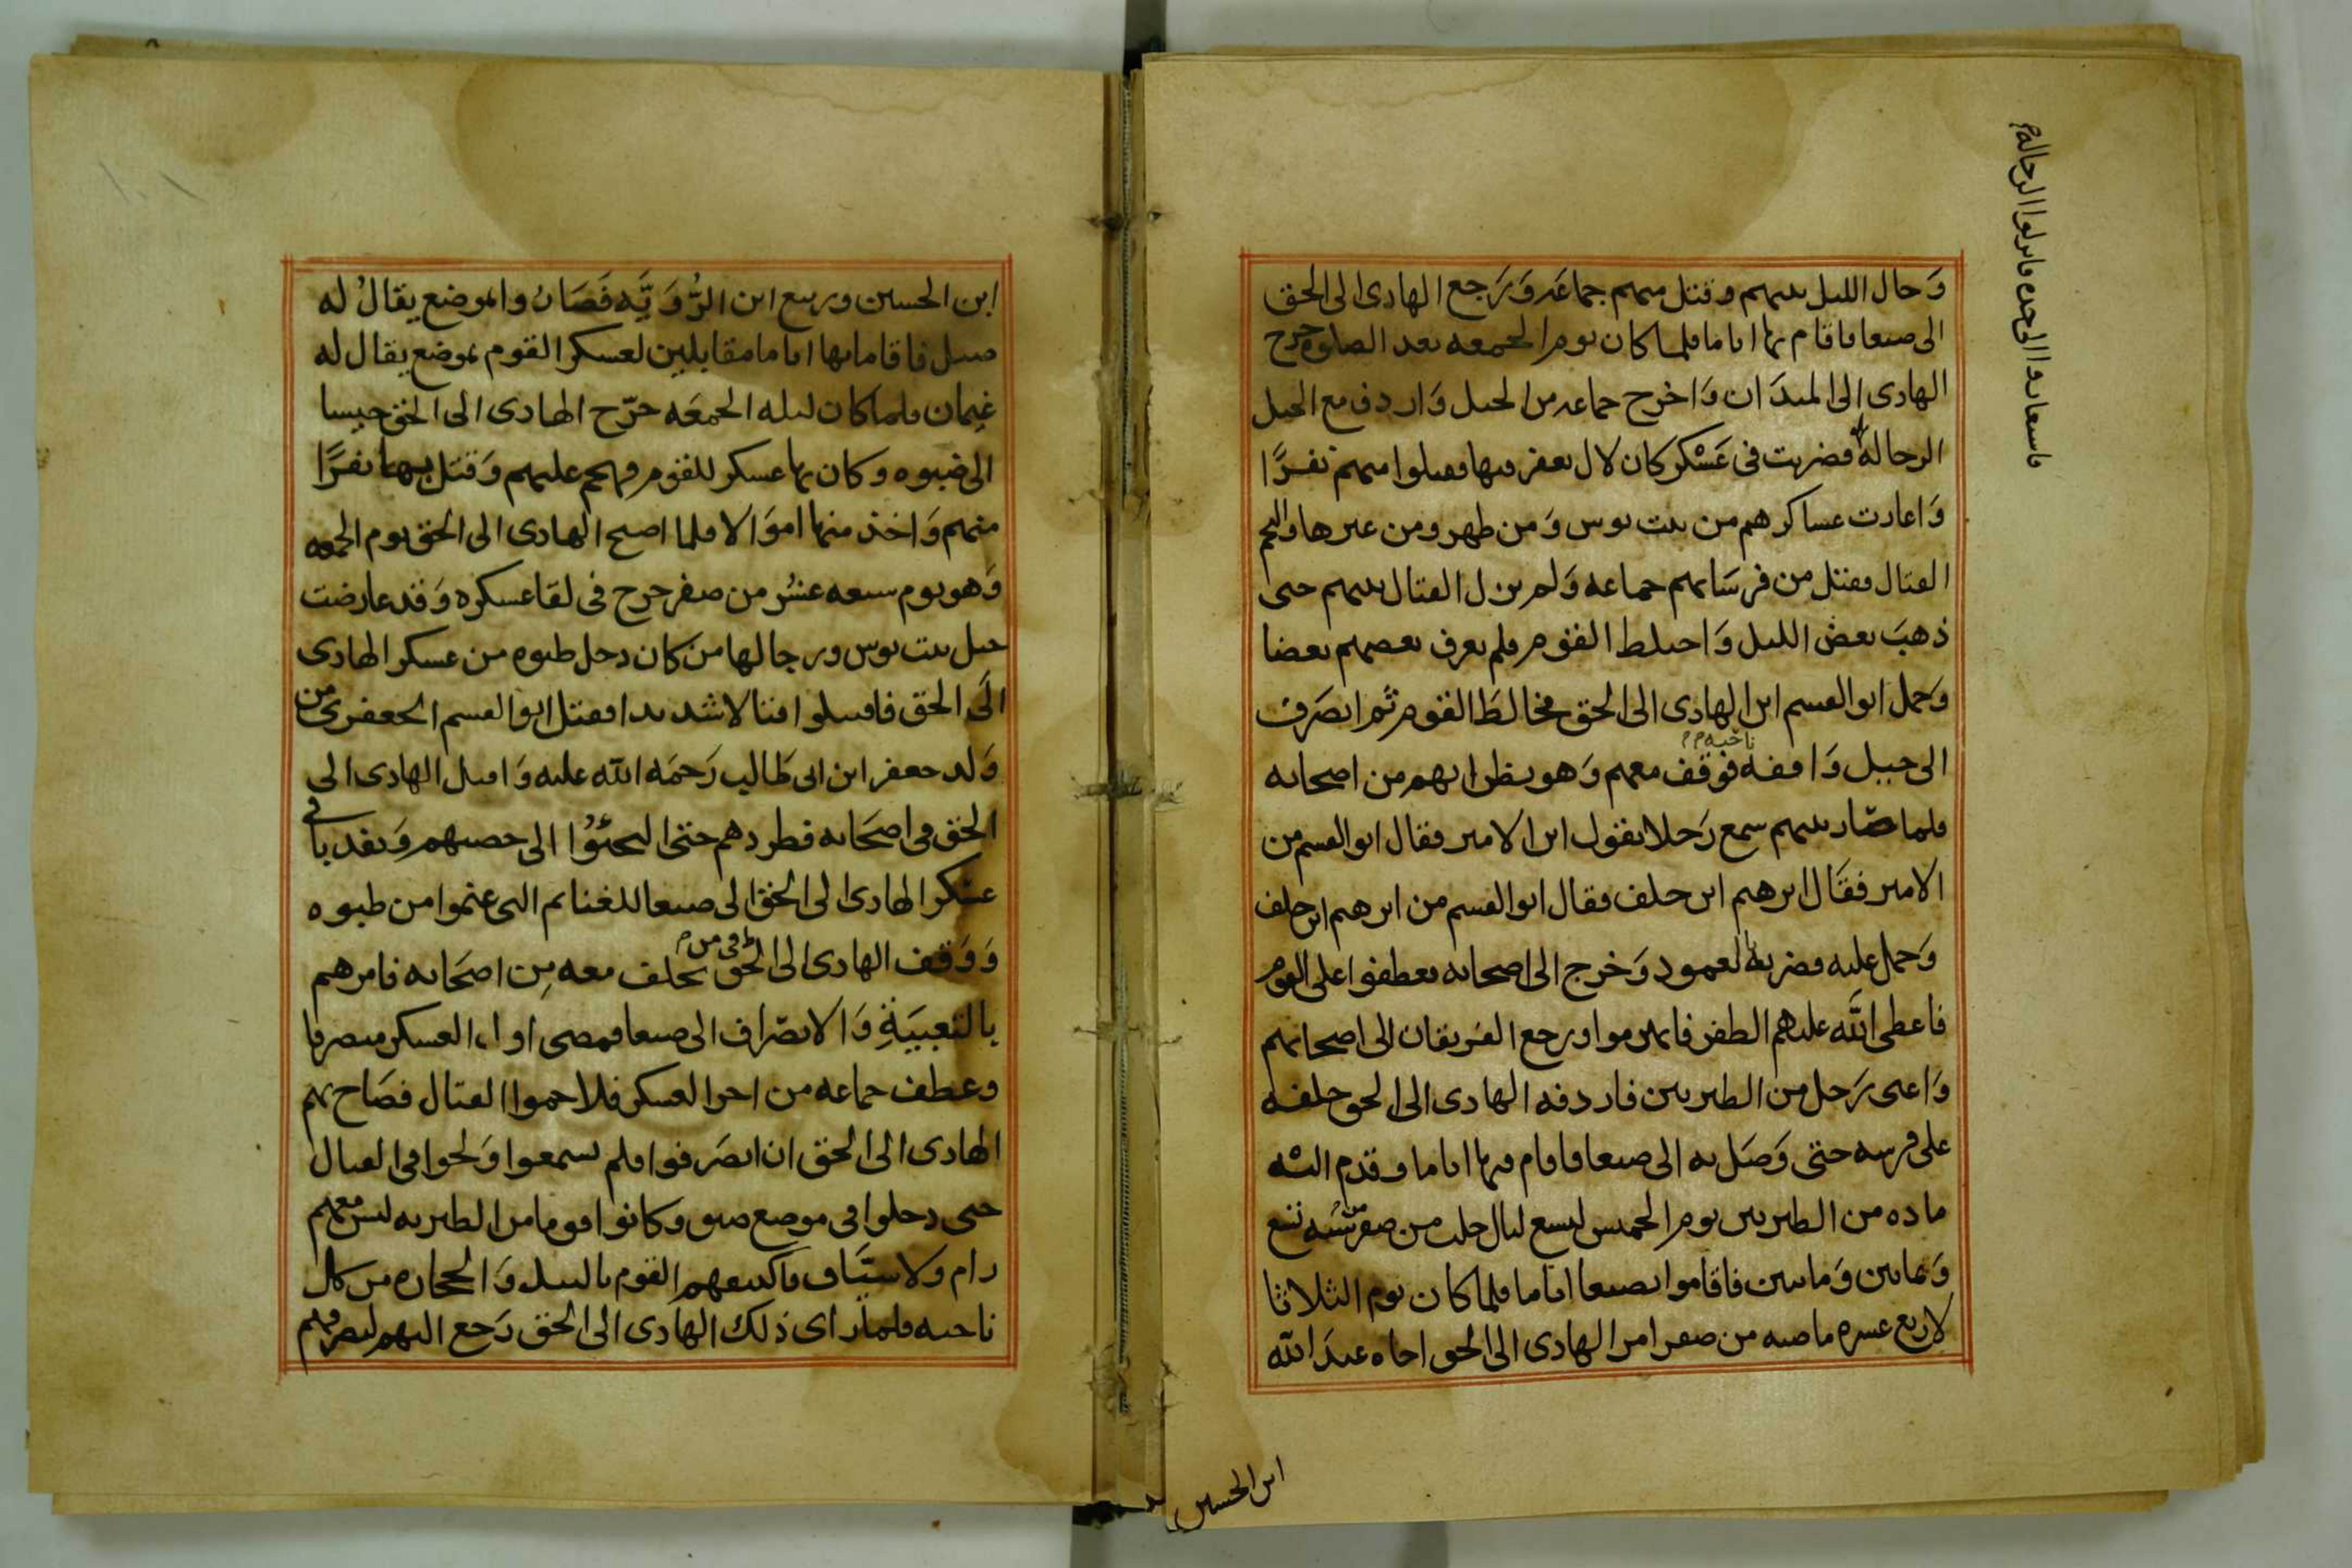 وَحال الليل بينهم وقتل منهم جماعَه وَرَجع الهادى الى الحق
الى صنعا فاقام بها اياما فلما كان يوم الجمعه بعد الصلوه خرج
الهادى الى الميدَان وَاخرج جماعه من الخيل وَاردف مع الخيل
الرجاله فضربت فى عَسْكر كان لال يعفر فيها فقتلوا منهم نفرًا
وَاغارت عساكرهم من بيت بوس وَمن ظهر ومن غيرها والتحم
القتال فقتل من فرسَانهم جماعه وَلم يزل القتال بينهم حتى
ذهبَ بعض الليل وَاختلط القوم فلم يعرف بعضهم بعضا
وَحمل ابو القسم ابن الهادى الى الحق فخالطَ القوم ثم انصَرف
الى جبيل وَاقفه ناحيه فوقف معهم وَهو يظن انهم من اصحابه
فلما صَار بينهم سمع رَجلا يقول اين الامير فقال ابو القسم من
الامير فقَال ابرهيم ابن خلف فقال ابو القسم من ابرهيم ابن خلف
وَحمل عليه فضربه بالعمود وَخرج الى اصحابه فعطفوا على القوم
فاعطى اللّه عليهم الظفر فانهزموا ورجع الفريقان الى اصحابهم
وَاعيى رَجل من الطبريين فاردفه الهادى الى الحق خلفه
على فرسه حتى وَصَل به الى صنعا فاقام فيها اياما وقدم اليْه
ماده من الطبريين يوم الخميس لتسع ليال خلت من صفر من سَنه تسع
وَثمانين وَمايتين فاقاموا بصنعا اياما فلما كان يوم الثلاثا
لاربع عشره ماضيه من صفر امر الهادى الى الحق اخاه عبدَ اللّه
ابن الحسين
ابن الحسين وربيع ابن الرُّوَيَّه فصَارَا والموضع يقالُ له
فاقاما بها اياما مقابلين لعسكر القوم بموضع يقال له
غيمان فلما كان ليله الجمعَه خرّج الهادى الى الحق جيشا
الى ضبوه وكان بها عسكر للقوم فهجم عليهم وَقتل بها نفرًا
منهم وَاخذ منها اموَالا فلما اصبح الهادى الى الحق يوم الجمعه
وَهو يوم سبعه عشر من صفر خرج فى لقا عسكره وَقد عارضت
خيل بيت بوس ورجالها من كان دخل ظبوه من عسكر الهادى
الى الحق فاقتتلوا قتالا شديدا فقتل ابو القسم الجعفرى من
وَلد جعفر ابن ابى طَالب رَحمَه اللّه عليه وَاقبل الهادى الى
الحق فى اصحَابه فطردهم حتى الجئوُا الى حصنهم وَنفد باقى
عسْكر الهادى الى الحق الى صنعا للغنايم التى غنموا من ظبوه
وَوَقف الهادى الى الحق فى من تخلف معه مِن اصحَابه فامرهم
بالتعبيَةِ وَالانصرَاف الى صنعا فمضى اول العسكر منصرفا
وعطف جماعه من اخر العسكر فلاحموا القتال فصَاح بهم
الهادى الى الحق ان انصَرفوا فلم يسمعوا وَلجوا فى القتال
حتى دخلوا فى موضع ضيق وكانوا قوما من الطبريه ليس معهم
رام ولا سيَّاف فاكتنفهم القوم بالنبل وَالحجاره من كل
ناحيه فلما رَاى ذلك الهادى الى الحق رَجع اليهم ليصرفهم